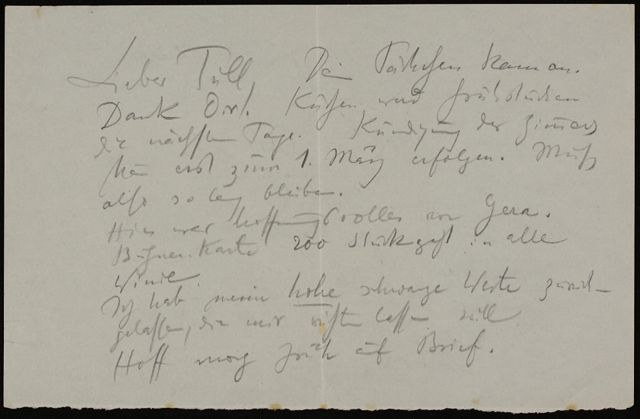 Lieber Tüll, Dein Päckchen kam an.
Dank Dir. Kuchen wird frühstücken
die nächsten Tage. Kündigung des Zimmers
kann erst zum 1. März erfolgen. Muß
also so lang bleiben.
Hier war hoffnungsvoller in Gera.
200 Stück in alle
Winde.
Ich hab meine hohe schwarze Weste zurück-
gelassen, die mir
Hoff morg früh auf Brief.